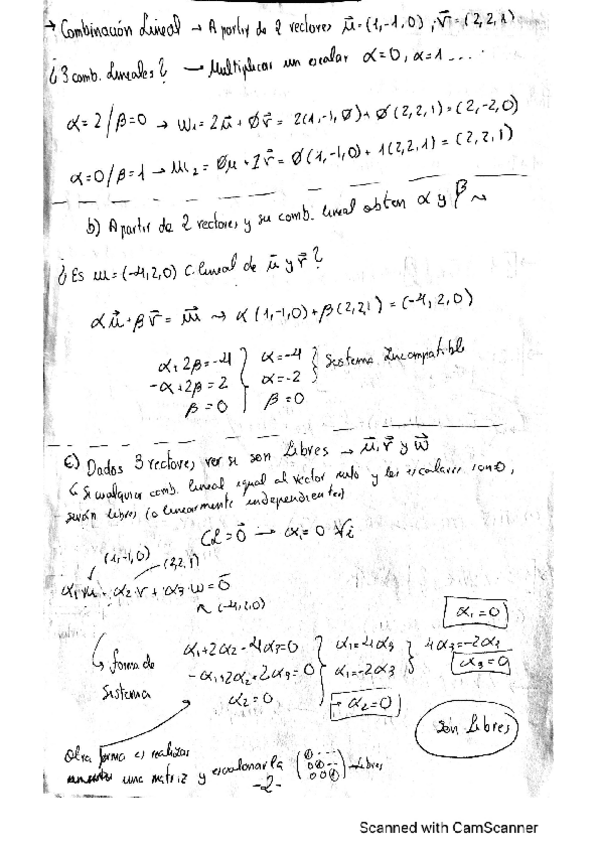 → Combinación Lineal → A partir de 2 vectores u⃗=(1,-1,0), v⃗=(2,2,1)
¿3 comb. Lineales? → Multiplicar un escalar α=0, α=1 ....
α=2/β=0 → w₁=2u⃗+0v⃗ = 2(1,-1,0)+0(2,2,1)=(2,-2,0)
α=0/β=1 → w₂=0u+1v⃗=0(1,-1,0)+1(2,2,1)=(2,2,1)
b) A partir de 2 vectores y su comb. lineal obten α y β
¿Es w=(-4,2,0) C. lineal de u⃗ y v⃗?
αu⃗+βv⃗=w⃗ → α(1,-1,0)+β(2,2,1)=(-4,2,0)
α+2β=-4 } α=-4 } Sistema Incompatible
-α+2β=2 } α=-2
β=0 } β=0
c) Dados 3 vectores, ver si son Libres → u⃗, v⃗ y w⃗
↳ Si cualquier comb. lineal igual al vector nulo y los escalares son 0,
serán libres (o linearmente independientes)
CL=0⃗ → αᵢ=0 ∀i
(1,-1,0) (2,2,1)
α₁u+α₂·v+α₃·w=0⃗
(-4,2,0)
α₁=0
↳ forma de
Sistema
α₁+2α₂-4α₃=0 } α₁=4α₃ } 4α₃=-2α₃
-α₁+2α₂+2α₃=0 } α₁=-2α₃ } α₃=0
α₂=0 → α₂=0
Son Libres
Otra forma es realizar
una matriz y escalonarla → Libres
-2-
Scanned with CamScanner